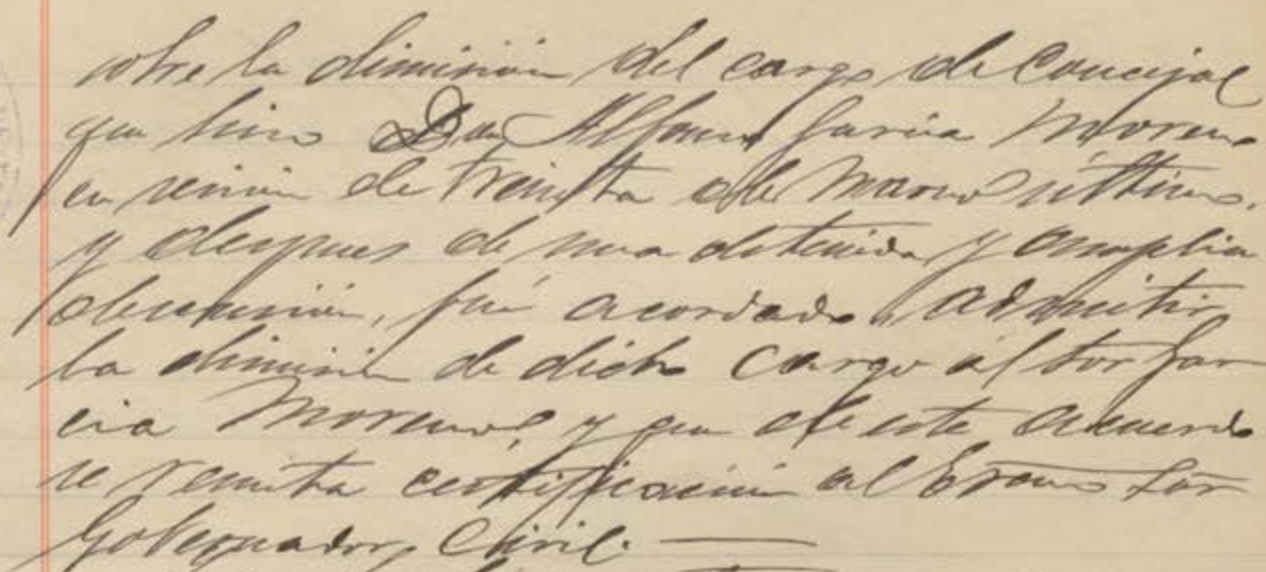 sobre la dimisión del cargo de Concejal
que hizo Don Alfonso Garcia Moreno
en sesion de treinta de Marzo último.
y despues de una detenida y amplia
discusión, fué acordado admitir
la dimision de dicho cargo al Sor Gar
cia Moreno, y que de este acuerdo
se remita certificación al Excmo Sor
Gobernador Civil.